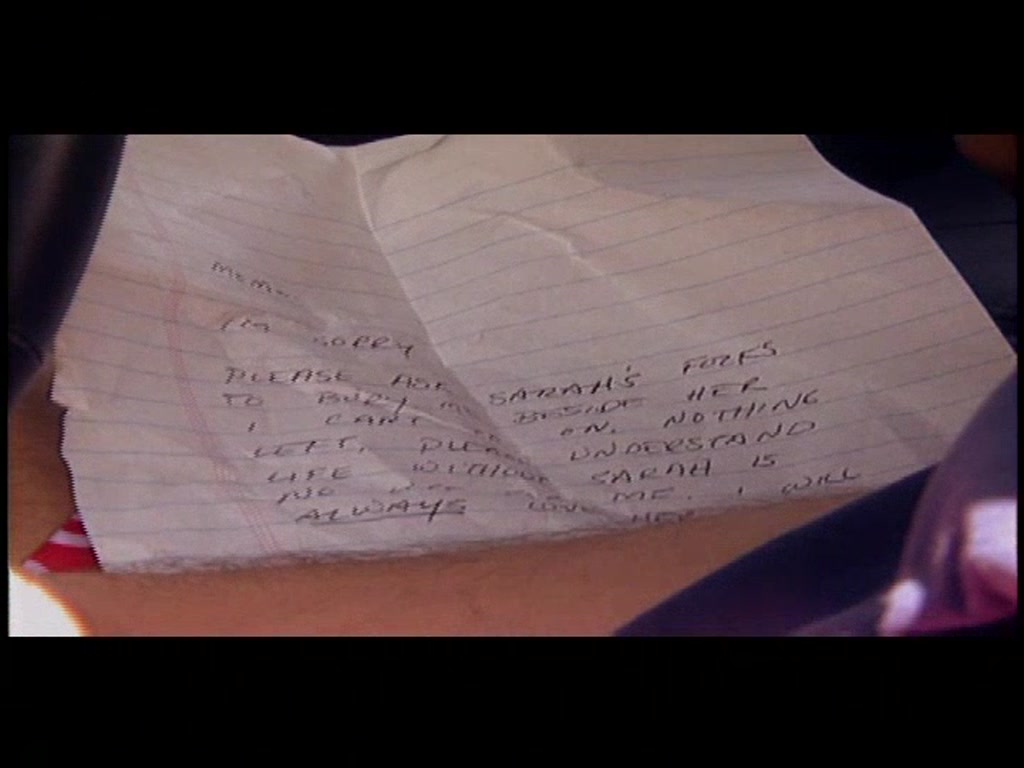 I'M
SORRY
PLEASE ASK SARAH'S FOLKS
TO BURY ME BESIDE HER
I CANT ON. NOTHING
LEFT. PLEASE UNDERSTAND
LIFE WITHOUT SARAH IS
NO ME. I WILL
ALWAYS LOVE HER